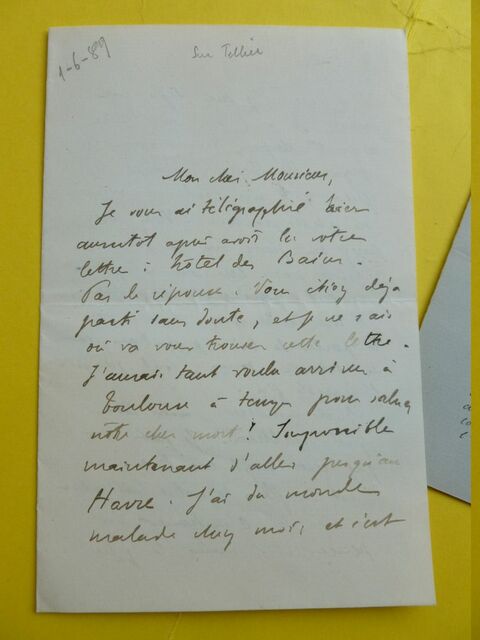 1-6-89
Sur Tellier
Mon cher Monsieur,
Je vous ai télégraphié hier
aussitôt après avoir lu votre
lettre : hôtel des Bains.
Pas de réponse. Vous étiez déjà
parti sans doute, et je ne sais
où va vous trouver cette lettre.
J'aurais tant voulu arriver à
Toulouse à temps pour saluer
notre cher mort ! Impossible
maintenant d'aller jusqu'au
Havre. J'ai du monde
malade chez moi, et c'est